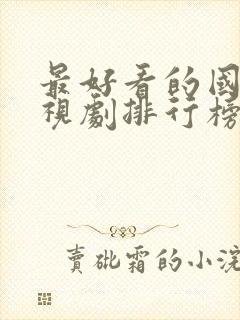 最好看的國
視劇排行榜
賣砒霜的小浣